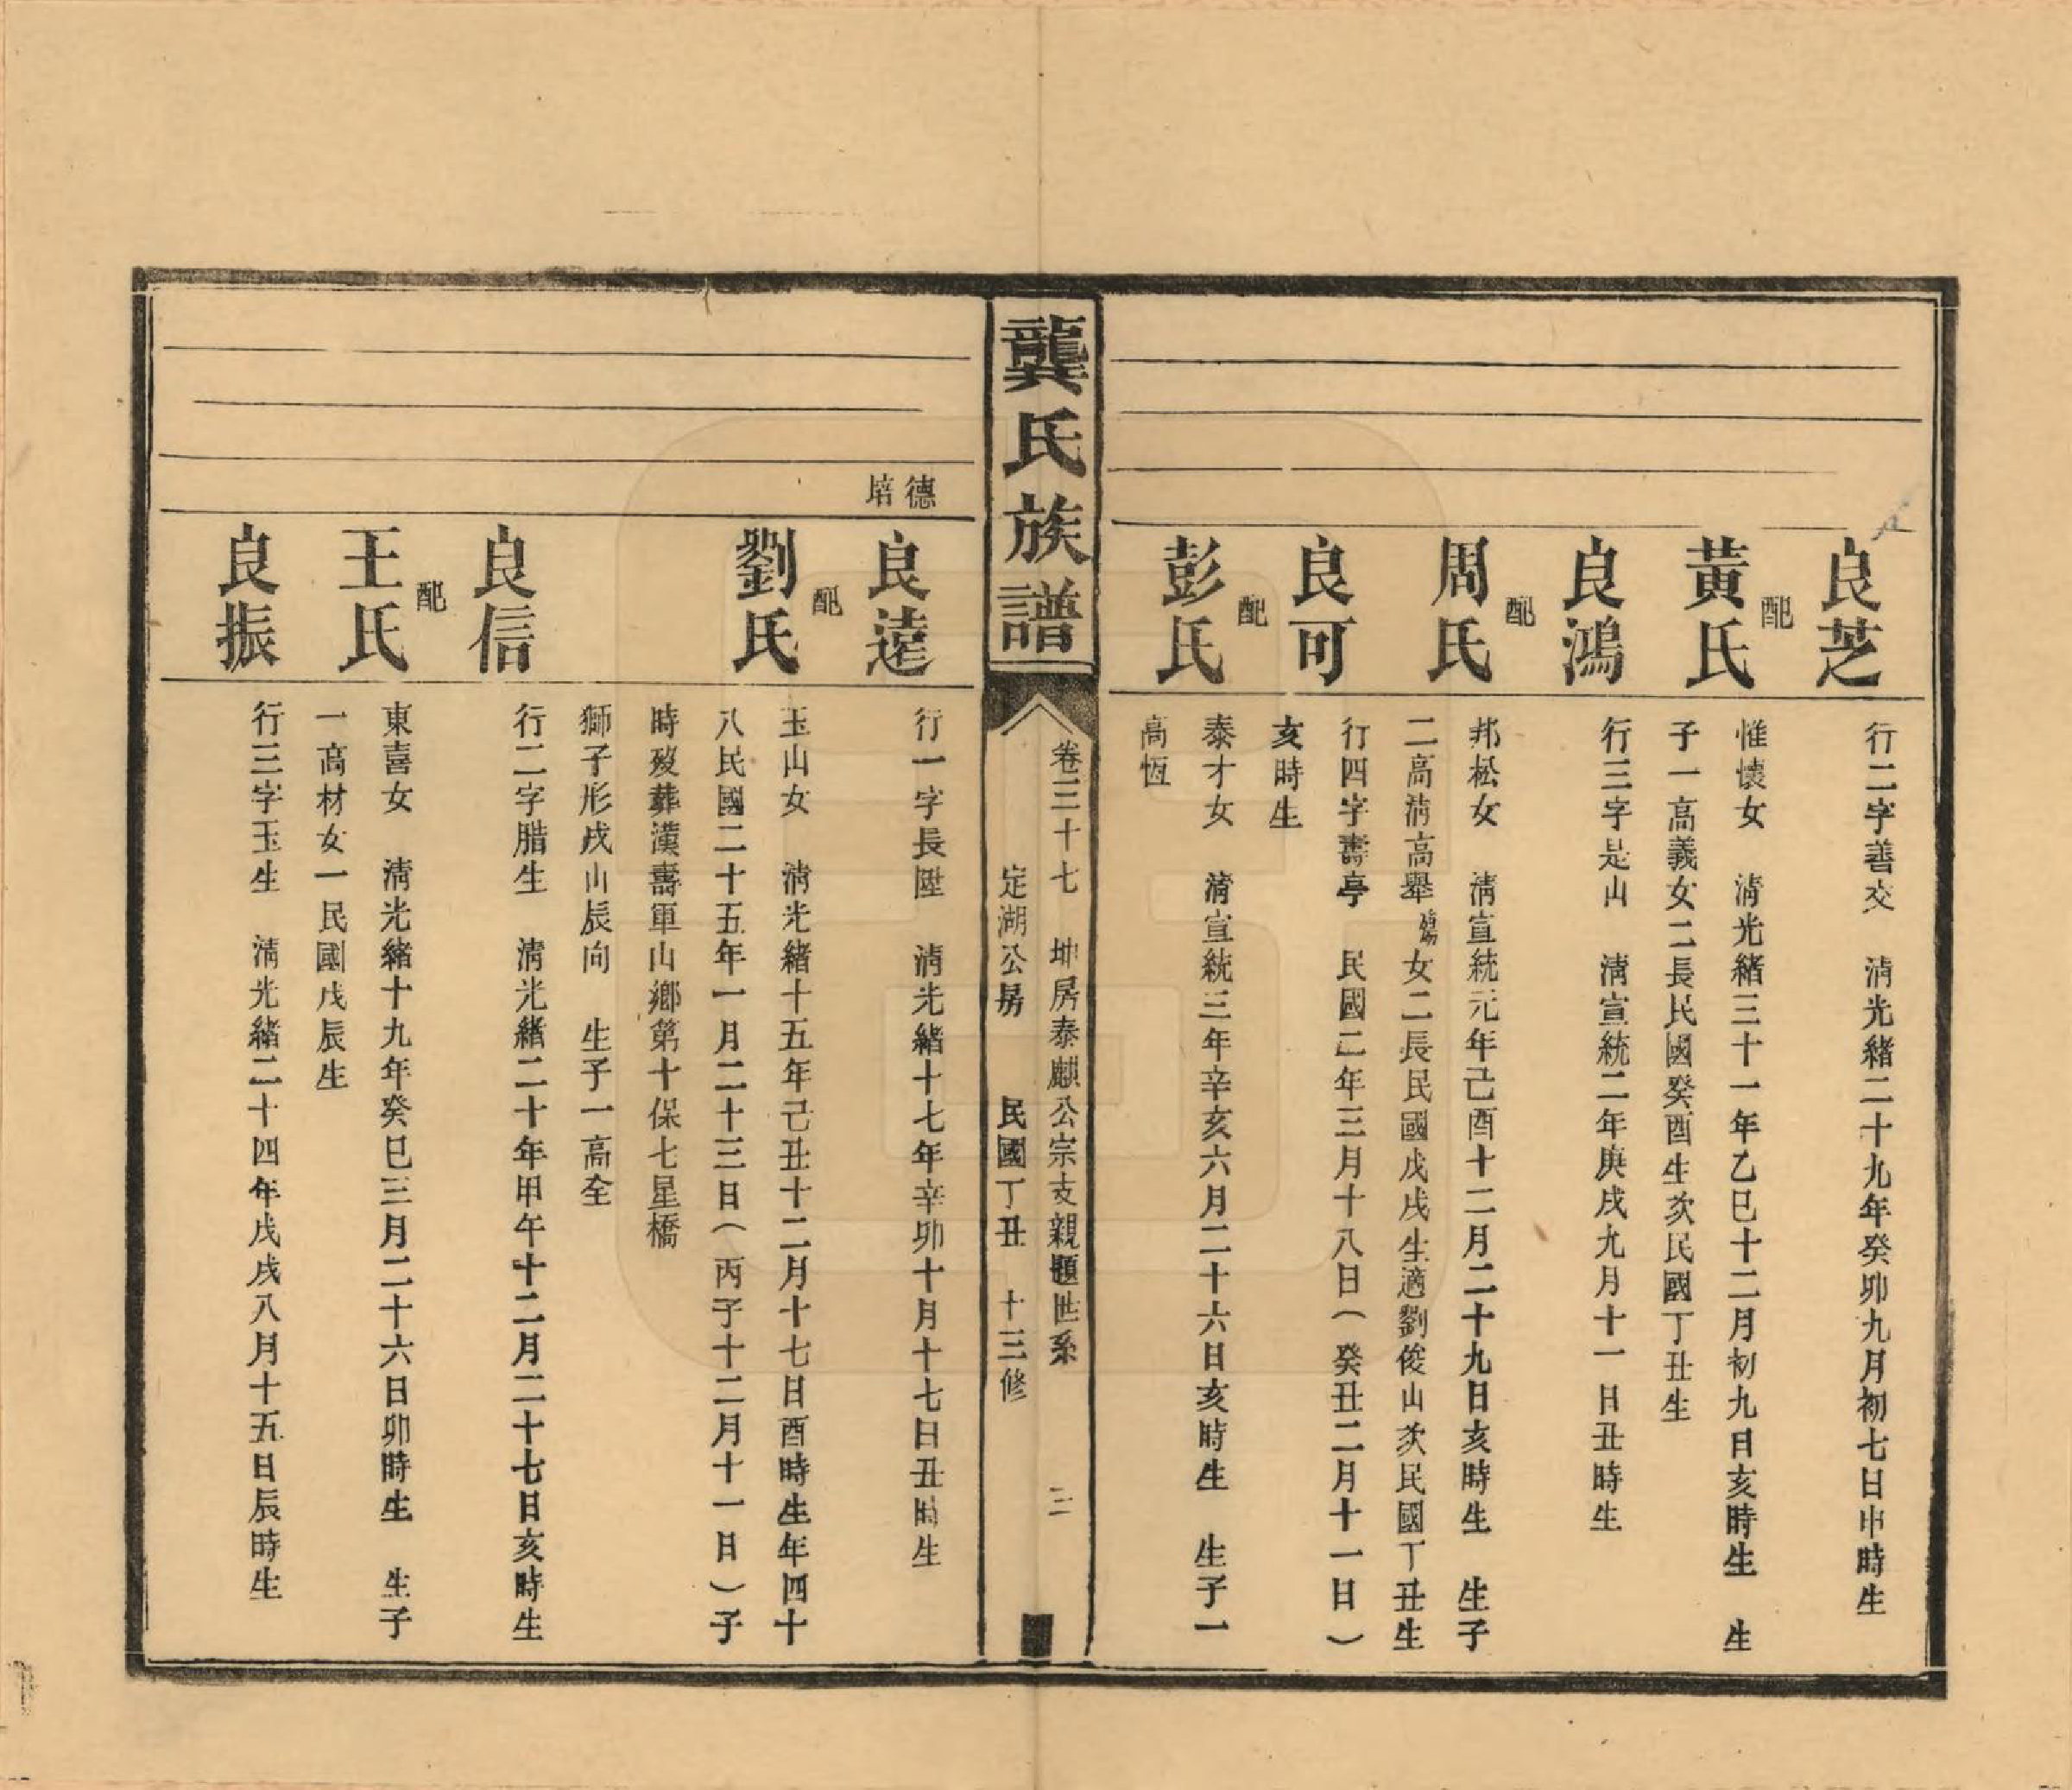 良芝
行二字善交　清光緒二十九年癸卯九月初七日申時生
配
黃氏
惟懷女　清光緒三十一年乙巳十二月初九日亥時生　生
子一高義女二長民國癸酉生次民國丁丑生
良鴻
行三字是山　清宣統二年庚戌九月十一日丑時生
配
周氏
邦松女　清宣統元年己酉十二月二十九日亥時生　生子
二高清高舉女二長民國戊戌生適劉俊山次民國丁丑生
良可
行四字壽亭　民國二年三月十八日（癸丑二月十一日）
亥時生
配
彭氏
泰才女　清宣統三年辛亥六月二十六日亥時生　生子一
高恆
龔氏族譜
卷三十七　坤房泰麒公宗支親題世系　三
定湖公房　民國丁丑　十三修
德培
良遠
行一字長陞　清光緒十七年辛卯十月十七日丑時生
配
劉氏
玉山女　清光緒十五年己丑十二月十七日酉時生年四十
八民國二十五年一月二十三日（丙子十二月十一日）子
時歿葬漢壽軍山鄉第十保七星橋
獅子形戌山辰向　生子一高全
良信
行二字腊生　清光緒二十年甲午十二月二十七日亥時生
配
王氏
東喜女　清光緒十九年癸巳三月二十六日卯時生　生子
一高材女一民國戊辰生
良振
行三字玉生　清光緒二十四年戊戌八月十五日辰時生